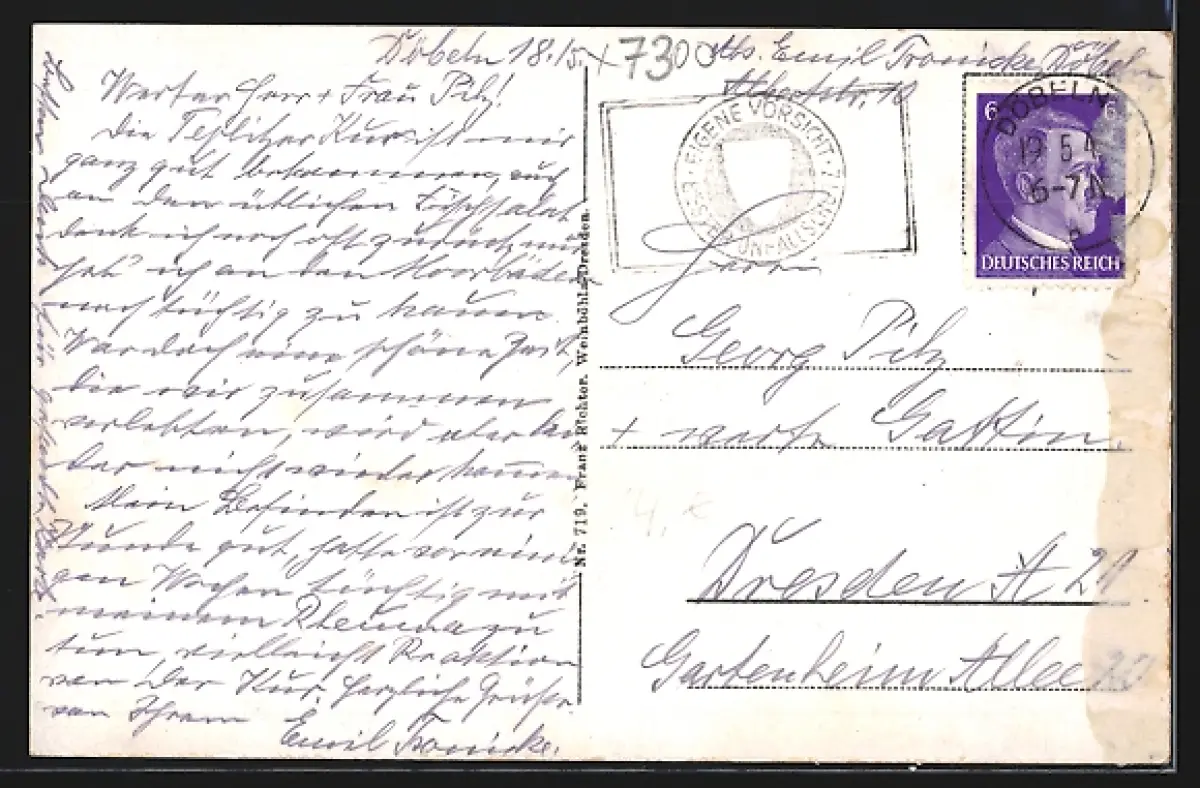 Döbeln 18./5. + 7300 Abs. Emil Tronicke, Döbeln
Albertstr. 10
Werter Herr + Frau Pilz!
Die Teplitzer Kur ist mir
ganz gut bekommen, auch
an den üblichen
denk ich noch oft zurück, nur
ich an den Moorbäder
noch tüchtig zu kauen.
War doch eine schöne Zeit,
die wir zusammen
verlebten, wird aber lei
der nicht wieder kommen
Mein Befinden ist zur
Stunde gut, hatte vor eini
gen Wochen tüchtig mit
meinem Rheuma zu
tun, vielleicht Reaktion
von der Kur. Herzliche Grüße
von Ihrem
Emil Tronicke.
Nr. 719. Franz Richter, Weinböhla-Dresden.
EIGENE VORSICHT
6 6
DEUTSCHES REICH
DÖBELN
19.5.4
6-7
Herrn
Georg Pilz
+ werte Gattin.
Dresden A 21
Gartenheim Allee